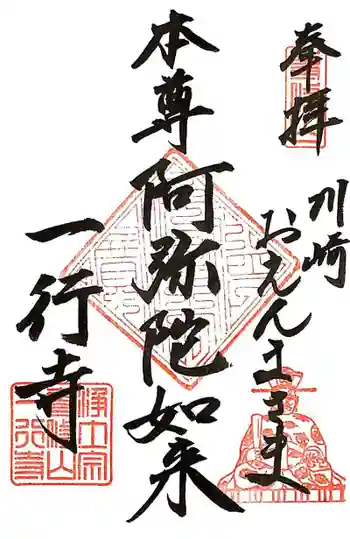 奉拝
川崎
おえんまさま
本尊阿弥陀如来
一行寺
浄土宗
一行寺